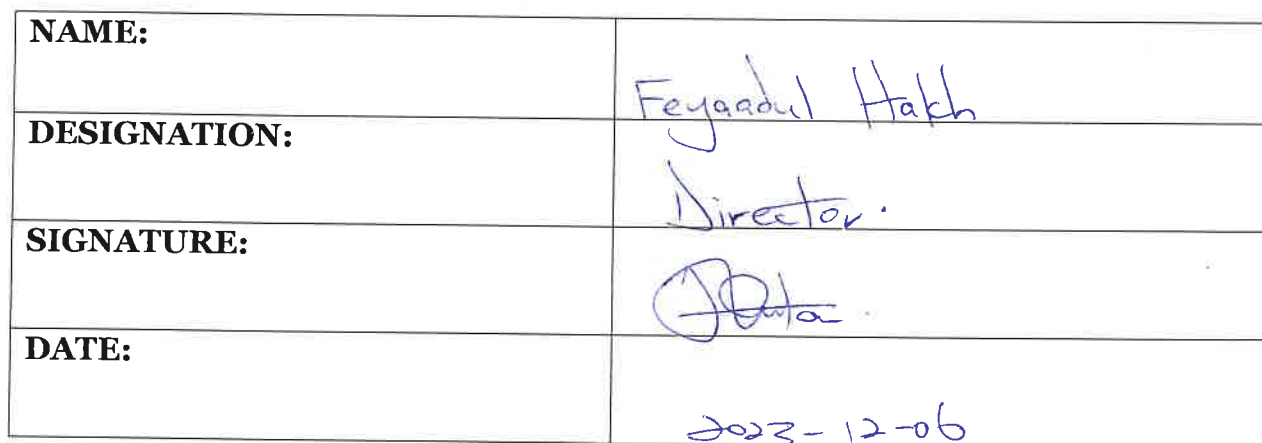 NAME:
Feyaadul Hakh
DESIGNATION:
Director.
SIGNATURE:
DATE:
2023-12-06